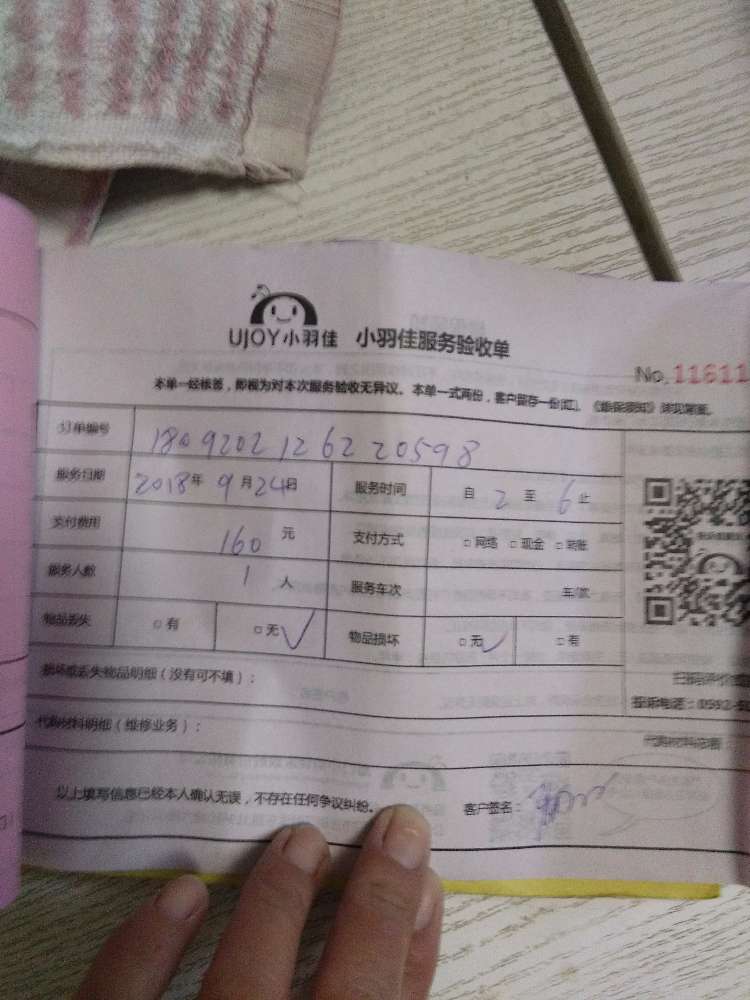 UJOY小羽佳 小羽佳服务验收单
No.11611
本单一经核签，即视为对本次服务验收无异议。本单一式两份，客户留存一份(红)。
订单编号 1809202126220598
服务日期 2018年9月24日 服务时间 自 2 至 6 止
支付费用 160 元 支付方式 □网络 □现金 □转账
服务人数 1 人 服务车次 车/次
物品丢失 □有 □无✓ 物品损坏 □无✓ □有
损坏或丢失物品明细（没有可不填）：
投诉电话：0592-
代购材料明细（维修业务）：
以上填写信息已经本人确认无误，不存在任何争议纠纷。 客户签名：